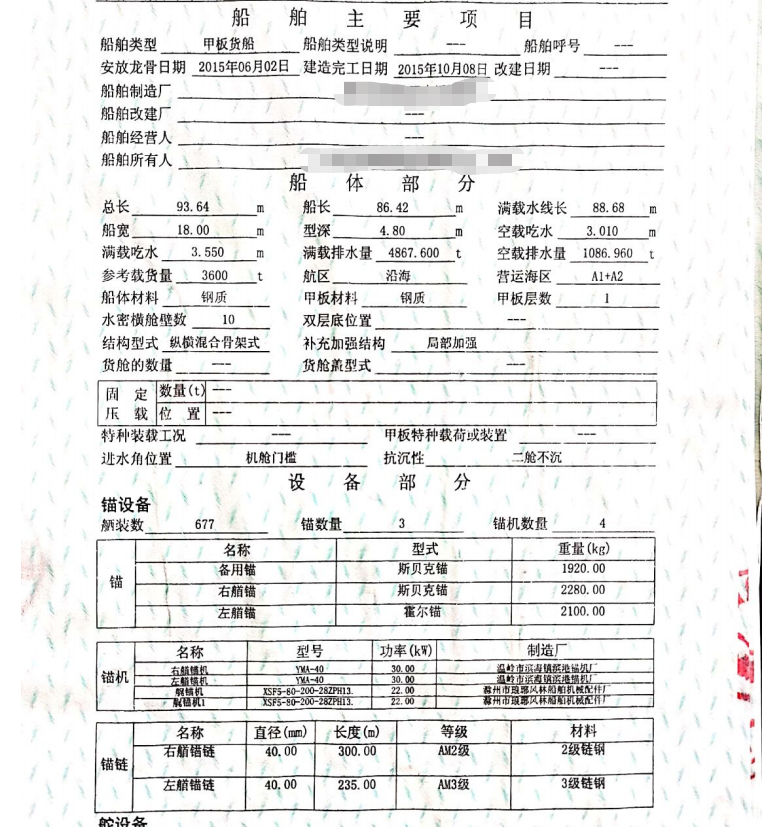 船舶主要项目
船舶类型 甲板货船 船舶类型说明 --- 船舶呼号 ---
安放龙骨日期 2015年06月02日 建造完工日期 2015年10月08日 改建日期 ---
船舶制造厂
船舶改建厂 ---
船舶经营人 ---
船舶所有人
船体部分
总长 93.64 m 船长 86.42 m 满载水线长 88.68 m
船宽 18.00 m 型深 4.80 m 空载吃水 3.010 m
满载吃水 3.550 m 满载排水量 4867.600 t 空载排水量 1086.960 t
参考载货量 3600 t 航区 沿海 营运海区 A1+A2
船体材料 钢质 甲板材料 钢质 甲板层数 1
水密横舱壁数 10 双层底位置 ---
结构型式 纵横混合骨架式 补充加强结构 局部加强
货舱的数量 --- 货舱盖型式 ---
固定 数量(t) ---
压载 位置 ---
特种装载工况 --- 甲板特种载荷或装置 ---
进水角位置 机舱门槛 抗沉性 二舱不沉
设备部分
锚设备
舾装数 677 锚数量 3 锚机数量 4
名称 型式 重量(kg)
锚 备用锚 斯贝克锚 1920.00
右艏锚 斯贝克锚 2280.00
左艏锚 霍尔锚 2100.00
名称 型号 功率(kW) 制造厂
锚机 右艏锚机 YMA-40 30.00 温岭市滨海镇滨港锚机厂
左艏锚机 YMA-40 30.00 温岭市滨海镇滨港锚机厂
艉锚机 XSF5-80-200-28ZPH13. 22.00 滁州市琅琊风林船舶机械配件厂
艉锚机1 XSF5-80-200-28ZPH13. 22.00 滁州市琅琊风林船舶机械配件厂
名称 直径(mm) 长度(m) 等级 材料
锚链 右艏锚链 40.00 300.00 AM2级 2级链钢
左艏锚链 40.00 235.00 AM3级 3级链钢
舵设备